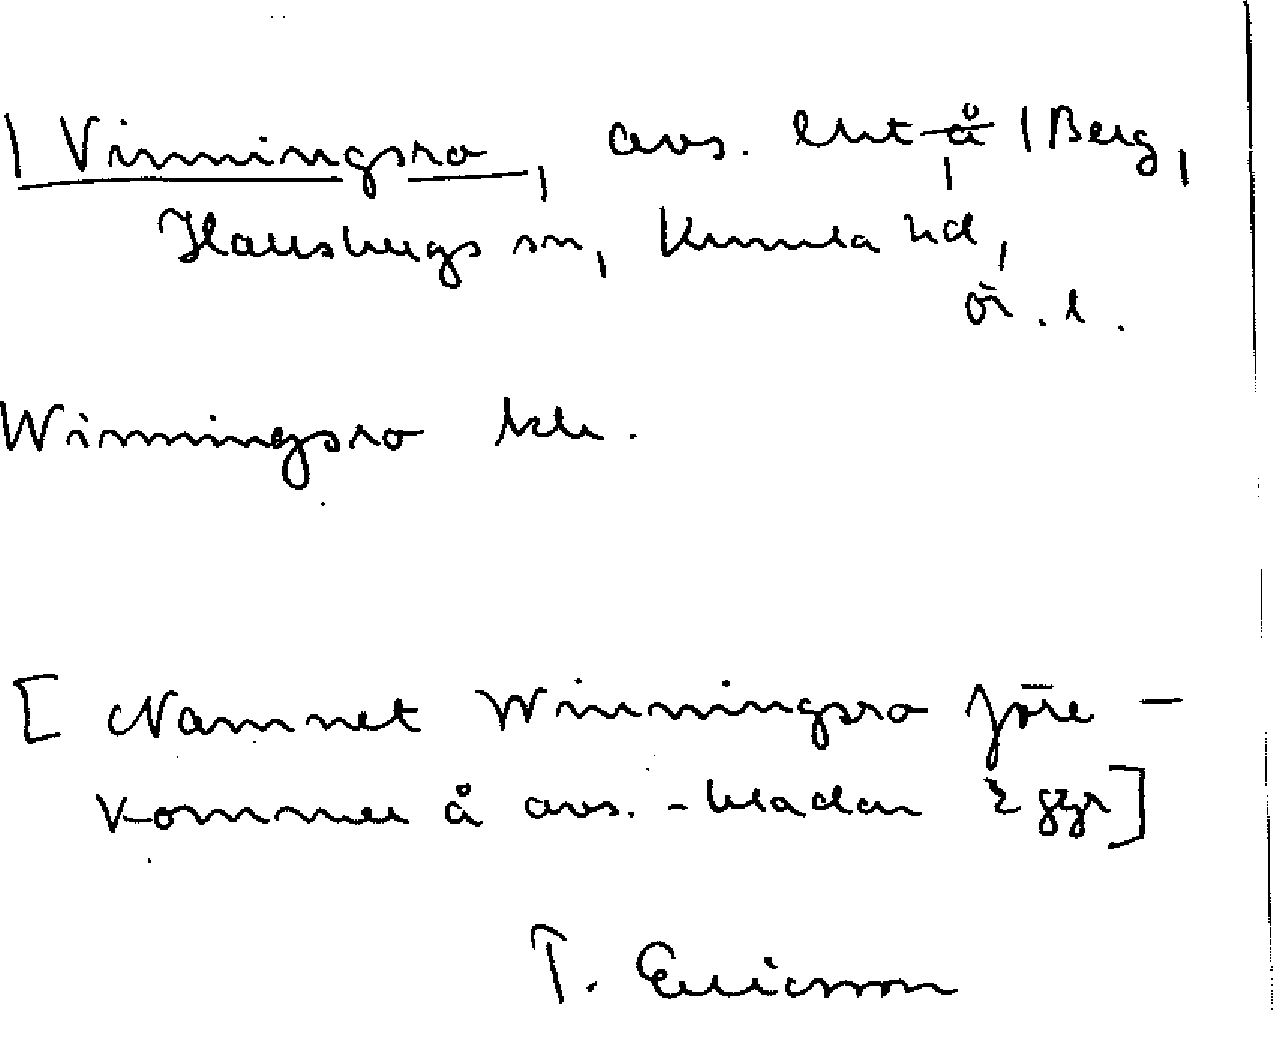 Vinningsro, avs. lht å Berg,
Hallsbergs sn, Kumla hd,
ör. l.
Winningsro
[Namnet Winningsro före-
kommer å avs.-bladen 2 ggr]
T. Ericsson